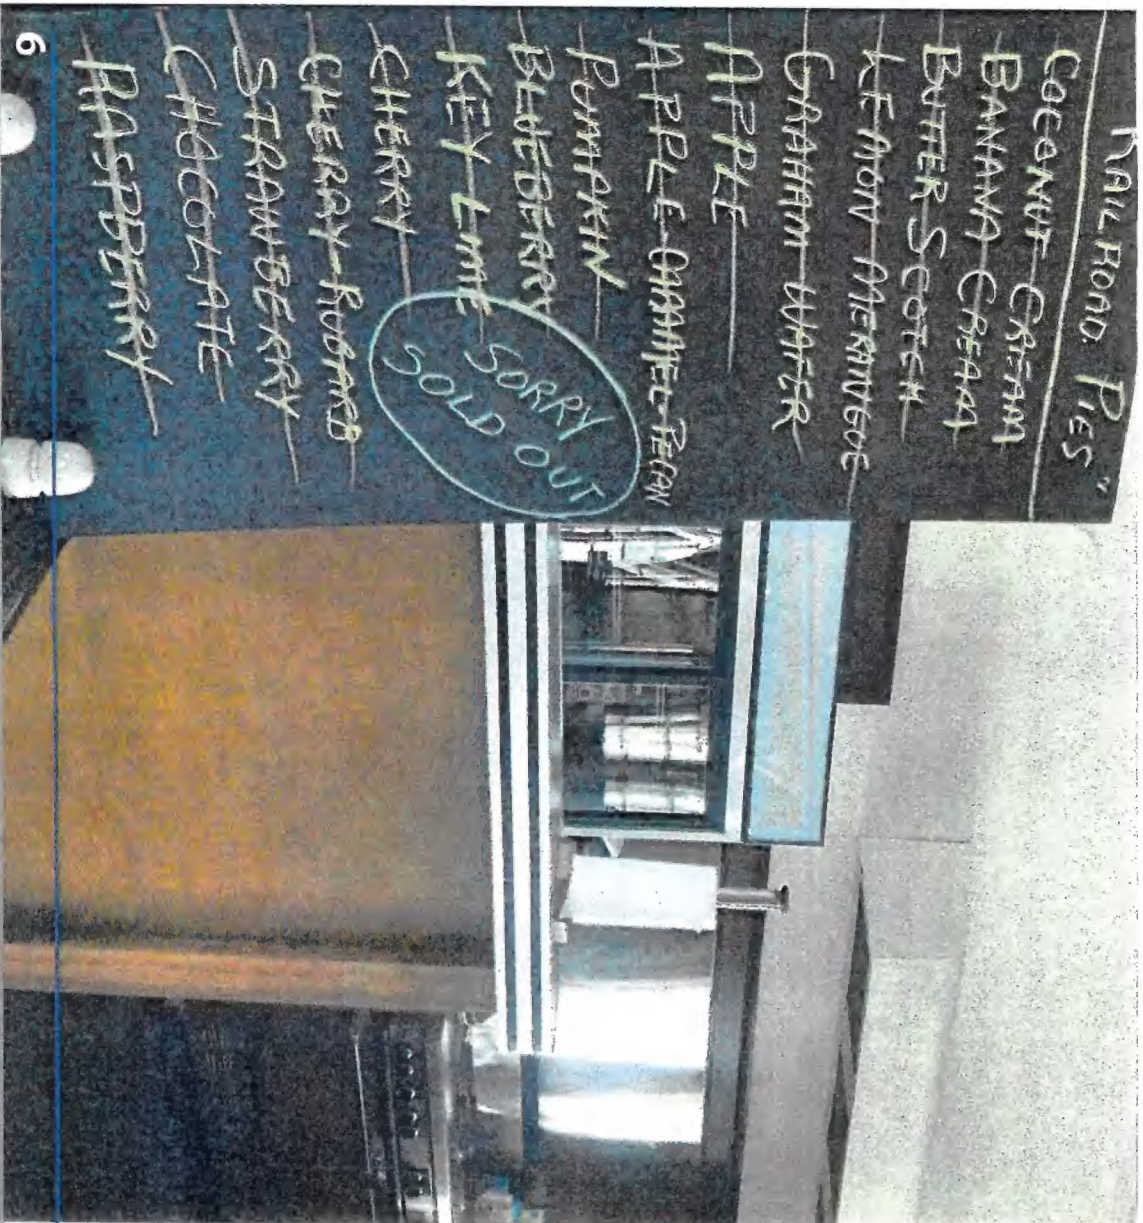 RAILROAD PIES"
COCONUT CREAM
BANANA CREAM
BUTTER SCOTCH
LEMON MERAINGUE
GRAHAM WAFER
APPLE
APPLE CARAMEL PECAN
PUMPKIN
BLUEBERRY
KEY LIME
CHERRY
SORRY
SOLD OUT
CHERRY-RUBARB
STRAWBERRY
CHOCOLATE
RASPBERRY
6